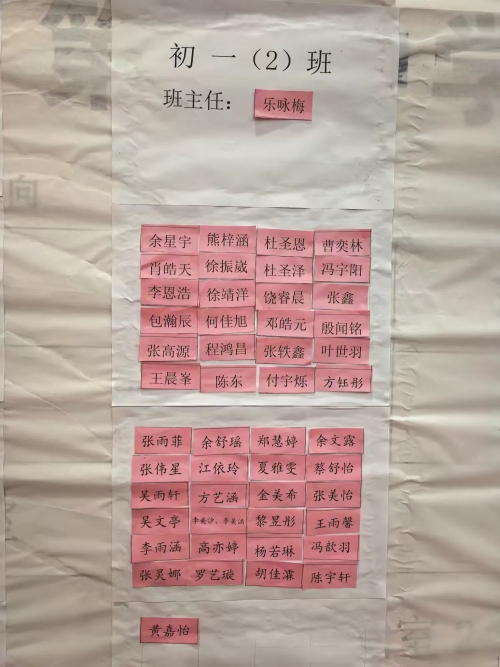 初一（2）班
班主任： 乐咏梅
余星宇 熊梓涵 杜圣恩 曹奕林
肖皓天 徐振崴 杜圣泽 冯宇阳
李恩浩 徐靖洋 饶睿晨 张鑫
包瀚辰 何佳旭 邓皓元 殷闻铭
张高源 程鸿昌 张轶鑫 叶世羽
王晨峯 陈东 付宇烁 方钰彤
张雨菲 余舒瑶 郑慧婷 余文露
张伟星 江依玲 夏雅雯 蔡舒怡
吴雨轩 方艺涵 金美希 张美怡
吴文亭 李美沙、李美涵 黎昱彤 王雨馨
李雨涵 高亦婷 杨若琳 冯歆羽
张灵娜 罗艺璇 胡佳霖 陈宇轩
黄嘉怡